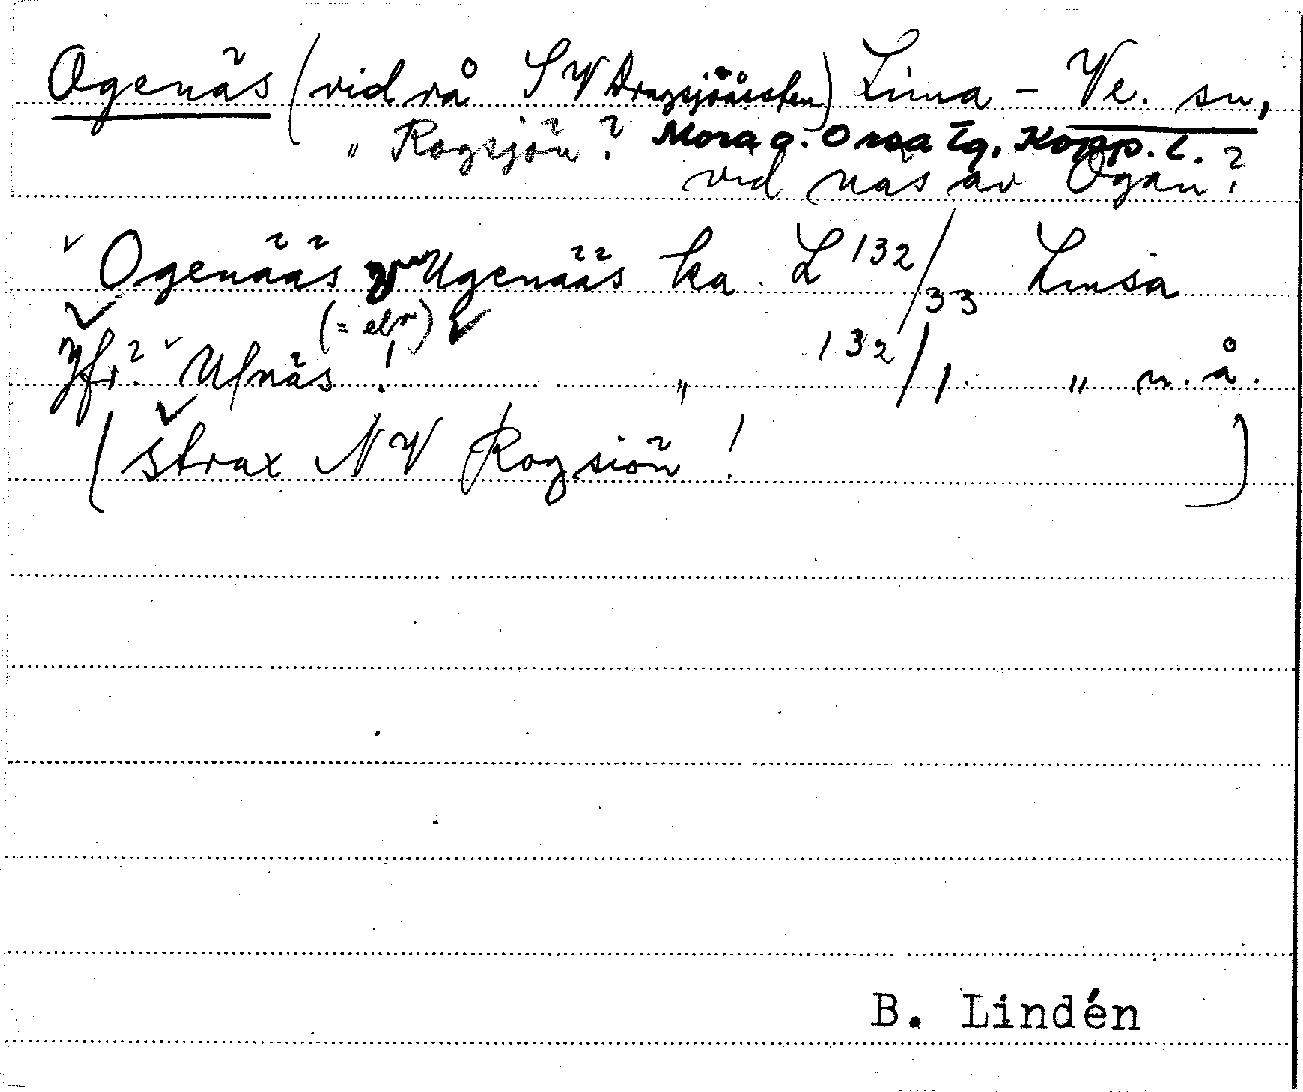 Ogenäs (vid rå SV Dragsjöåsen) Lima - Ve. sn,
" Rogsjön? Mora o. Orsa tg. Kopp. l.
vid näs av Ogån?
Ogenääs Ugenääs ka. L 132/33 Limsa
(= elr)
Jfr? Ulnäs! " 132/1. " n. å.
(strax NV Rogsiön! )
B. Lindén